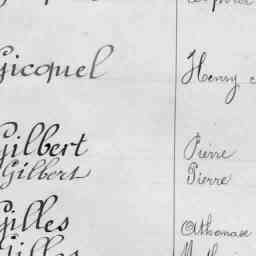 Gicquel Henry
Gilbert Pierre
Gilbert Pierre
Gilles Athanase
Gilles